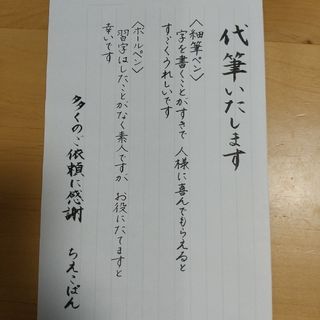 代筆いたします
〈細筆ペン〉
字を書くことがすきで 人様に喜んでもらえると
すごくうれしいです
〈ボールペン〉
習字はしたことがなく素人ですが、お役にたてますと
幸いです
多くのご依頼に感謝
ちえこばん